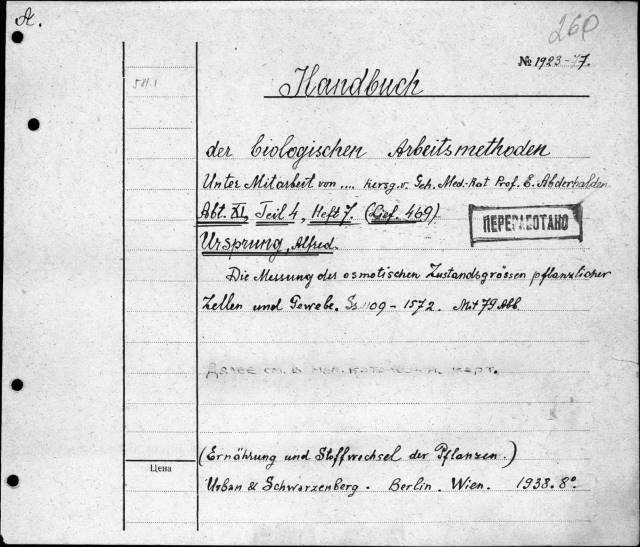 A.
260
№ 1923-77.
581.1
Handbuch
der biologischen Arbeitsmethoden
Unter Mitarbeit von .... herzg. v. Geh. Med.-Rat Prof. E. Abderhalden
Abt. XI, Teil 4, Heft 7. (Lief. 469)
ПЕРЕРАБОТАНО
Ursprung, Alfred.
Die Messung der osmotischen Zustandsgrössen pflanzlicher
Zellen und Gewebe. Ss. 1109 - 1572. Mit 79 Abb.
Далее см. в
карт.
(Ernährung und Stoffwechsel der Pflanzen.)
Цена
Urban & Schwarzenberg. Berlin. Wien. 1938. 8°